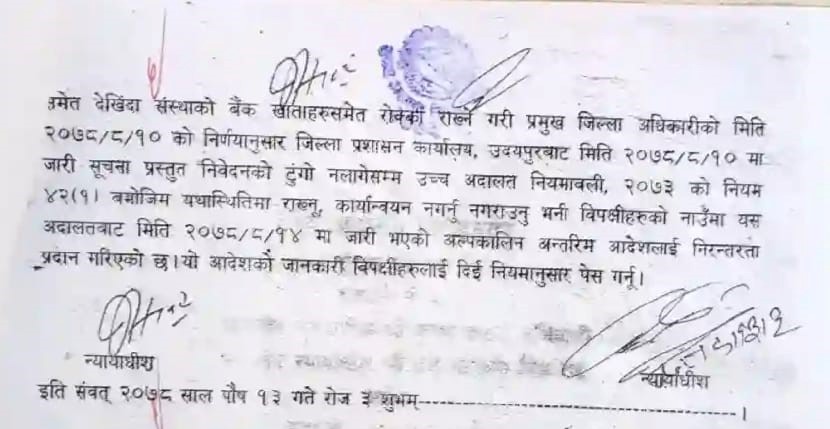 समेत देखिंदा संस्थाको बैंक खाताहरुसमेत रोक्का राख्ने गरी प्रमुख जिल्ला अधिकारीको मिति
२०७८/८/१० को निर्णयानुसार जिल्ला प्रशासन कार्यालय, उदयपुरबाट मिति २०७८/८/१० मा
जारी सूचना प्रस्तुत निवेदनको टुंगो नलागेसम्म उच्च अदालत नियमावली, २०७३ को नियम
४२(१) बमोजिम यथास्थितिमा राख्नू, कार्यान्वयन नगर्नु नगराउनु भनी विपक्षीहरुको नाउँमा यस
अदालतबाट मिति २०७८/८/१४ मा जारी भएको अल्पकालिन अन्तरिम आदेशलाई निरन्तरता
प्रदान गरिएको छ।यो आदेशको जानकारी विपक्षीहरुलाई दिई नियमानुसार पेस गर्नू।
न्यायाधीश
न्यायाधीश
इति संवत् २०७८ साल पौष १३ गते रोज ३ शुभम्------------------------------------------।